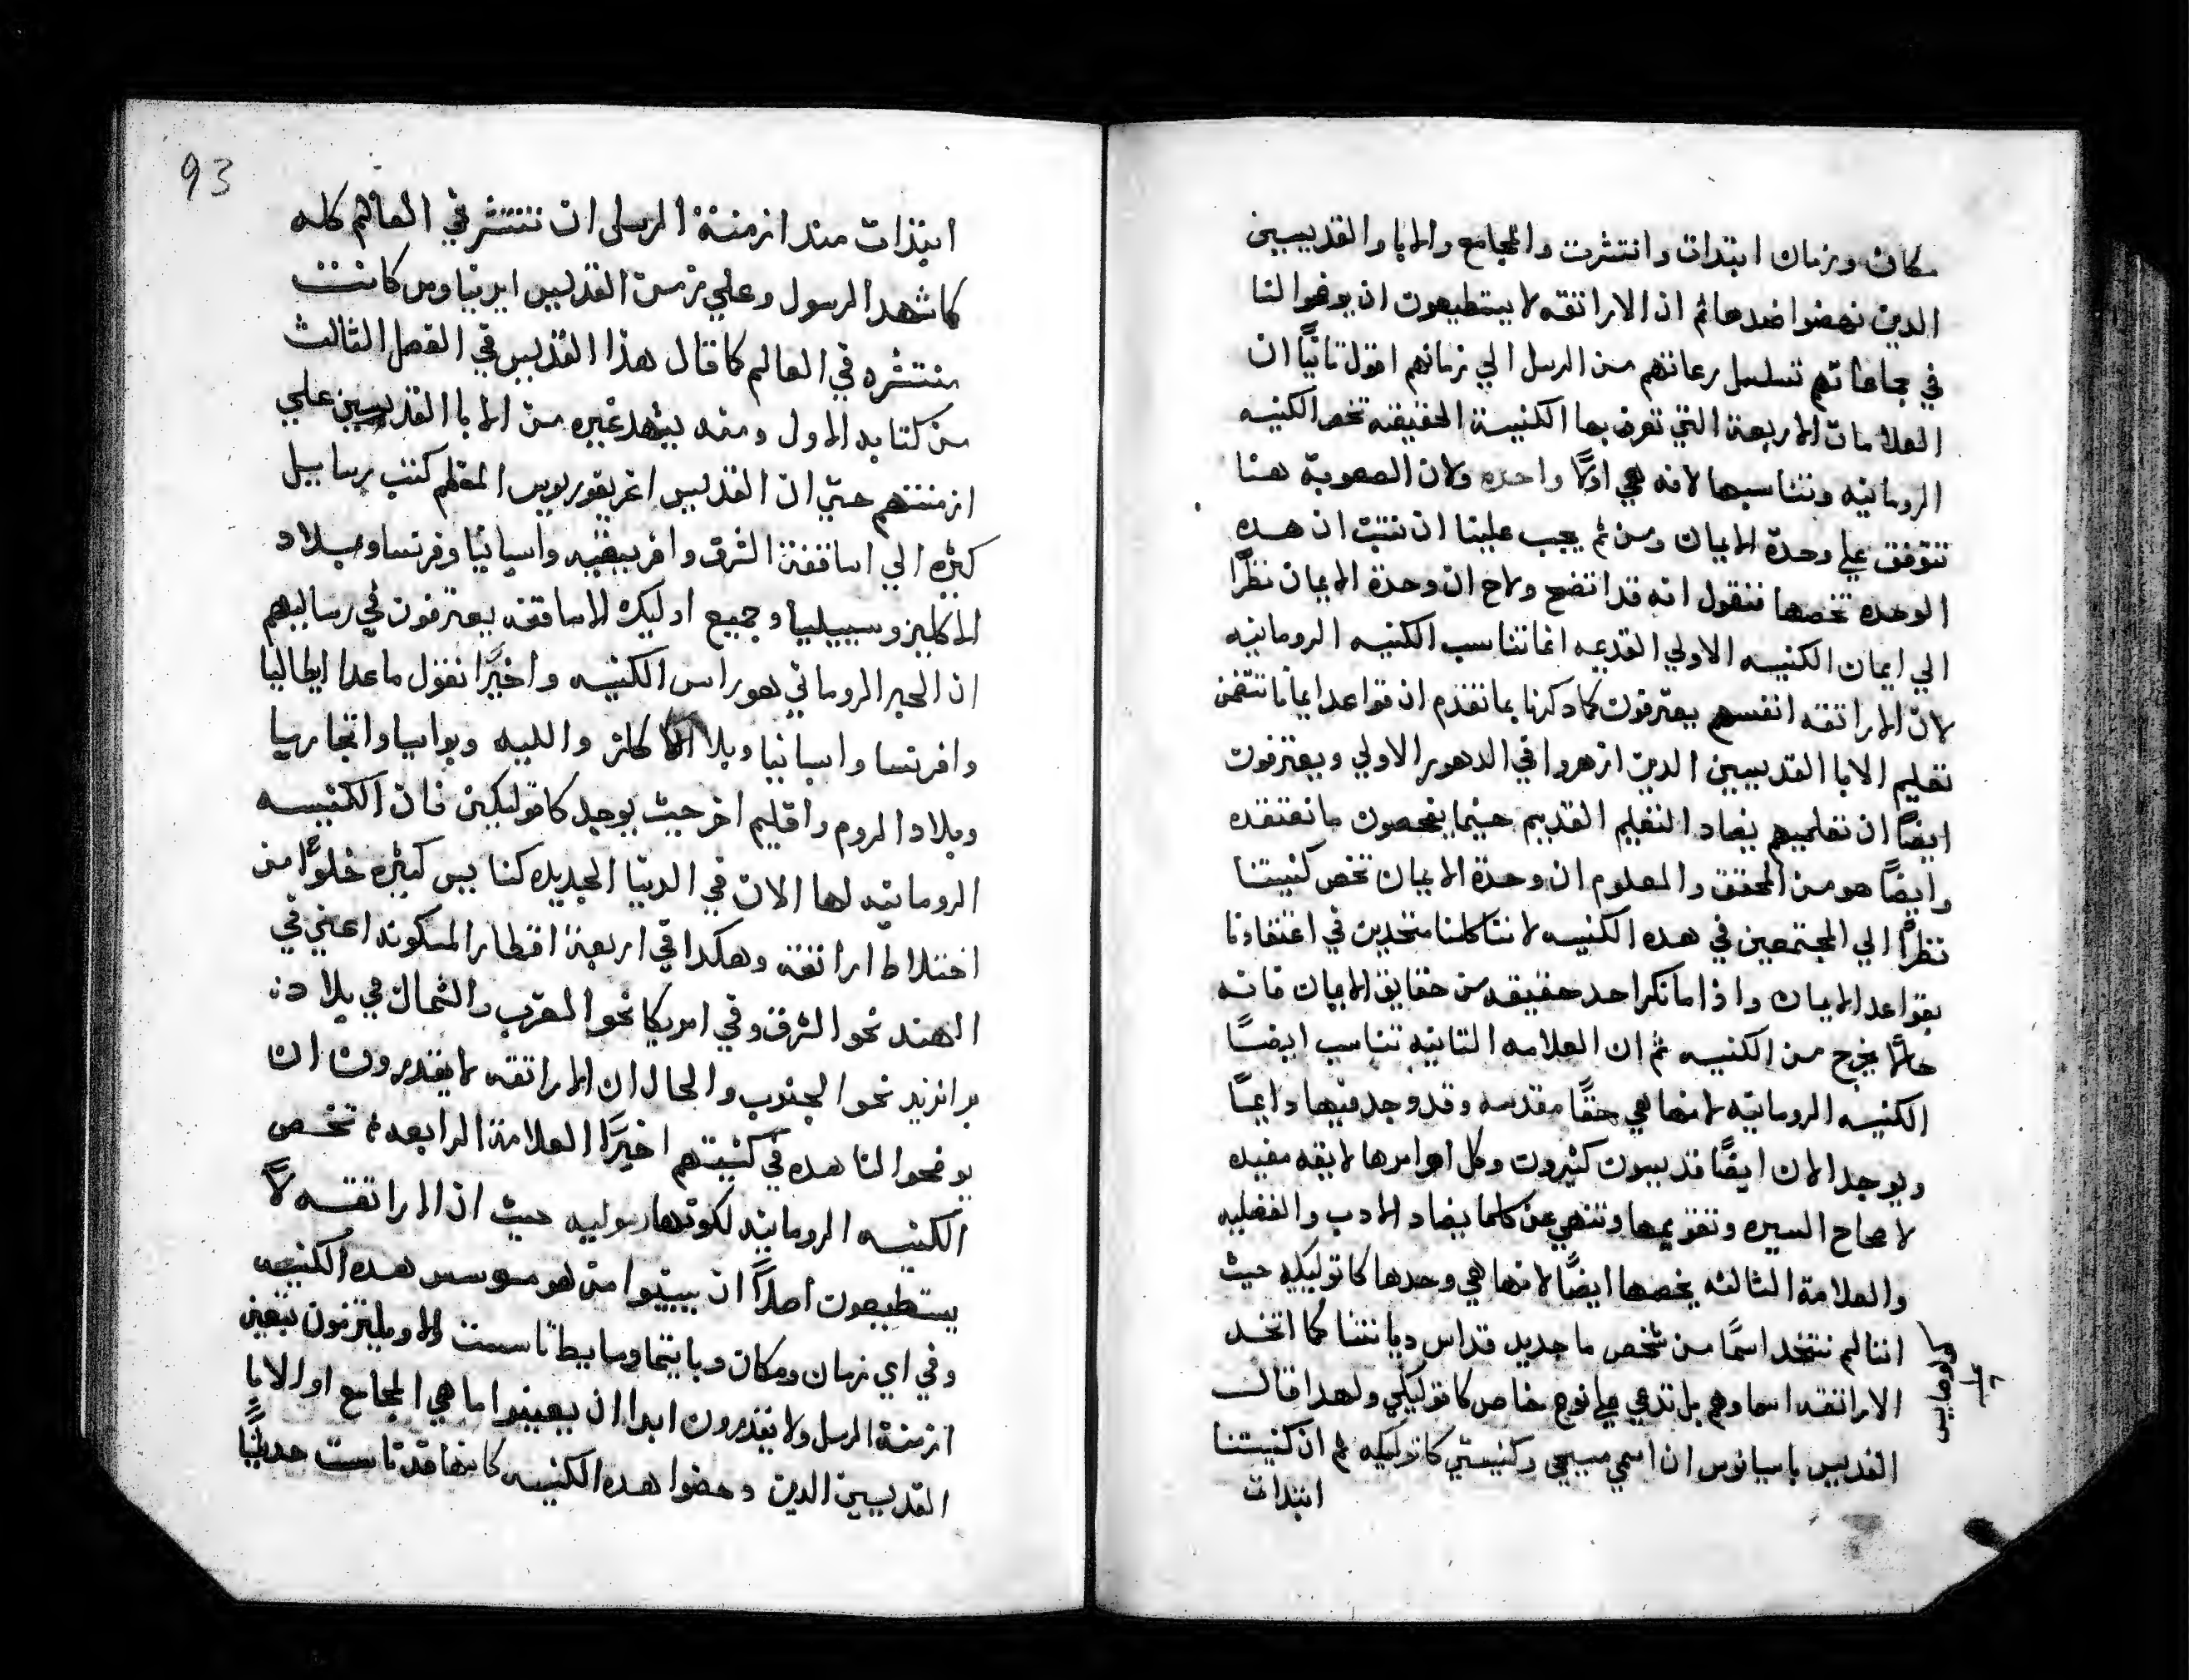 مكان وزمان ابتدات وانتشرت والمجامع والابا والقديسين
الدين نهضوا ضدها ثم اذ الاراتقه لا يستطيعون ان يوضحوا لنا
في جماعاتهم تسلسل رعاتهم من الرسل الي زمانهم اقول تانيًا ان
العلامات الاربعة التي تعرف بها الكنيسة الحقيقه تخص الكنيسه
الرومانيه وتناسبها لانه هي اولًا واحده ولان الصعوبة هنا
تتوقف علي وحدة الايمان ومن ثم يجب علينا ان نثبت ان هده
الوحده تخصها فنقول انه قد اتضح ولاح ان وحدة الايمان نظرًا
الي ايمان الكنيسه الاولي القديمه انما تناسب الكنيسه الرومانيه
لان الاراتقه انفسهم يعترفون كما دكرنا بما تقدم ان قواعد ايماننا تتضمن
تعليم الابا القديسين الدين ازهروا في الدهور الاولي ويعترفون
ايضًا ان تعليمهم يضاد التعليم القديم حينما يفحصون ما نعتقده
وايضًا هو من المحقق والمعلوم ان وحدة الايمان تخص كنيستنا
نظرًا الي المجتمعين في هده الكنيسه لاننا كلنا متحدين في اعتقادنا
بقواعد الايمان وادا ما نكر احد حقيقه من حقايق الايمان فانه
حالًا يخرج من الكنيسه ثم ان العلامه التانيه تناسب ايضًا
الكنيسه الرومانيه لانها هي حقًا مقدسه وقد وجد فيها دايمًا
ويوجد الان ايضًا قديسون كثيرون وكل اوامرها لايقه مفيده
لاصلاح السيره وتقويمها وتنهي عن كلما يضاد الادب والفضليه
والعلامة الثالثه يخصها ايضًا لانها هي وحدها كاتوليكيه حيث
اننا لم نتخد اسمًا من شخص ما جديد قداس ديانتنا كما اتخد
الاراتقه اسماوهم بل تدعي علي نوع خاص كاتوليكي ولهدا قال
القديس باسيانوس ان اسمي مسيحي وكنيستي كاتوليكيه ثم ان كنيستنا
ابتدات
93
ابتدات مند ازمنة الرسل ان تنتشر في العالم كله
كما شهد الرسول وعلي زمن القديس ايريناوس كانت
منتشره في العالم كما قال هذا القديس في الفصل الثالث
من كتابه الاول ومنه يشهد غيره من الابا القديسين علي
ازمنتهم حتي ان القديس اغريغوريوس المعظم كتب رسايل
كثيره الي اساقفة الشرق وافريقيه واسبانيا وفرنسا وبلاد
الانكليز وسيسيليا وجميع اوليك الاساقفه يعترفون في رسايلهم
ان الحبر الروماني هو راس الكنيسه واخيرًا نقول ما عدا ايطاليا
وافرنسا واسبانيا وبلاد الانكلتز والليه وبواسيا وانجاريا
وبلاد الروم واقليم اخر حيث يوجد كاتوليكين فان الكنيسه
الرومانيه لها الان في الدنيا الجديده كنايس كثيره خلوًا من
اختلاط اراتقه وهكدا في اربعة اقطار المسكونه اعني في
الهند نحو الشرق وفي امريكا نحو الغرب والشمال في بلاد
برازيد نحو الجنوب والحال ان الاراتقه لا يقدرون ان
يوضحوا لنا هده في كنيستهم اخيرًا العلامة الرابعه تخص
الكنيسه الرومانيه لكونها رسوليه حيث اذ الاراتقه لا
يستطيعون اصلًا ان يبينوا من هو موسس هده الكنيسه
وفي اي زمان ومكان وبايتما وسايط تاسست والا ويلتزمون بتعين
ازمنة الرسل ولا يقدرون ابدا ان يعينوا ما هي المجامع او الابا
القديسين الدين دحضوا هده الكنيسه كانها قد تاست حديثًا